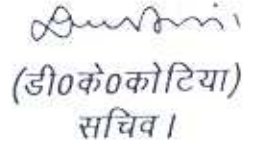 (डी०के०कोटिया)
सचिव।